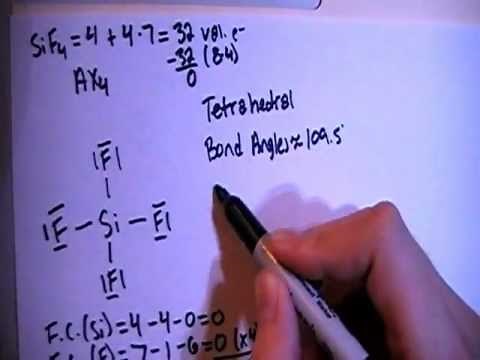 SiF4 = 4 + 4·7 = 32 val. e-
-32 (8·4)
0
AX4
Tetrahedral
Bond Angles ≈ 109.5°
|F|
|F - Si - F|
|F|
F.C.(Si) = 4-4-0=0
F.C.(F) = 7-1-6=0 (x4)